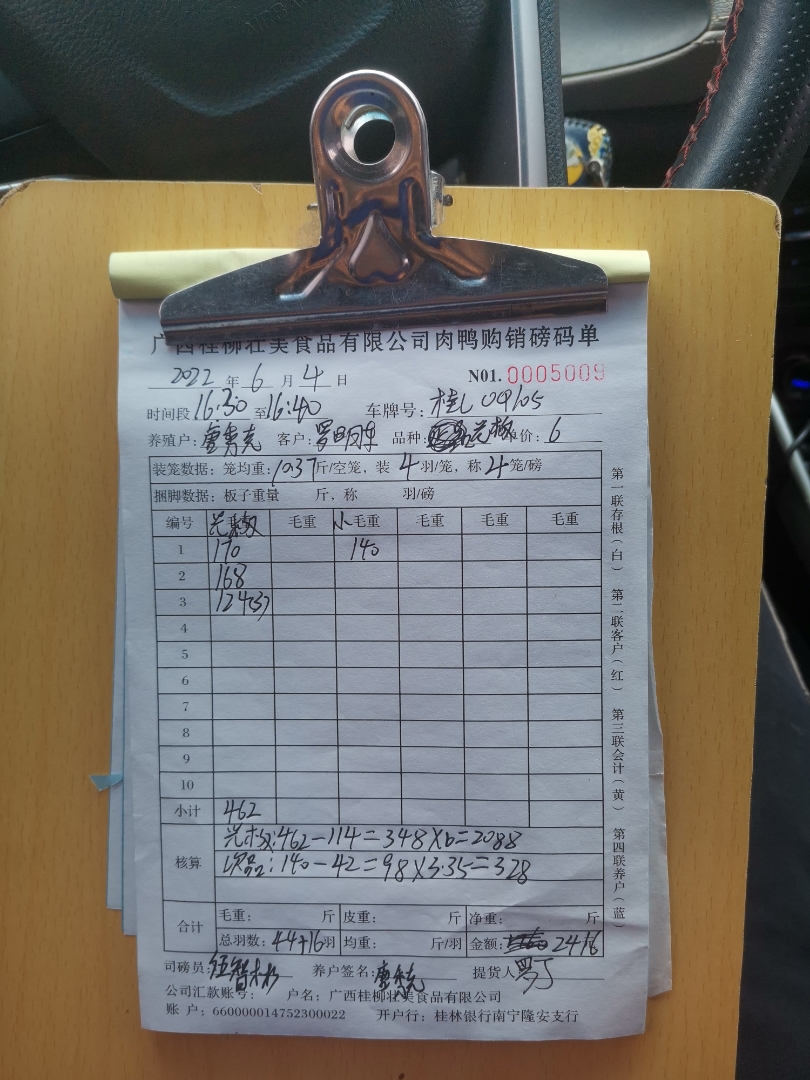 广西桂柳壮美食品有限公司肉鸭购销磅码单
2022 年 6 月 4 日 N01. 0005009
时间段 16:30 至 16:40 车牌号: 桂L 09105
养殖户: 客户: 罗 品种: 单价: 6
装笼数据: 笼均重: 10.37 斤/空笼, 装 4 羽/笼, 称 4 笼/磅
捆脚数据: 板子重量 斤, 称 羽/磅
编号 毛重 小毛重 毛重 毛重 毛重
1 170 140
2 168
3 124(3)
4
5
6
7
8
9
10
小计 462
核算 462-114=348×6=2088
次品: 140-42=98×3.35=328
合计 毛重: 斤 皮重: 斤 净重: 斤
总羽数: 44+16 羽 均重: 斤/羽 金额: 2416
司磅员: 伍智 养户签名: 提货人
公司汇款账号: 户名: 广西桂柳壮美食品有限公司
账 户: 660000014752300022 开户行: 桂林银行南宁隆安支行
第一联存根(白) 第二联客户(红) 第三联会计(黄) 第四联养户(蓝)